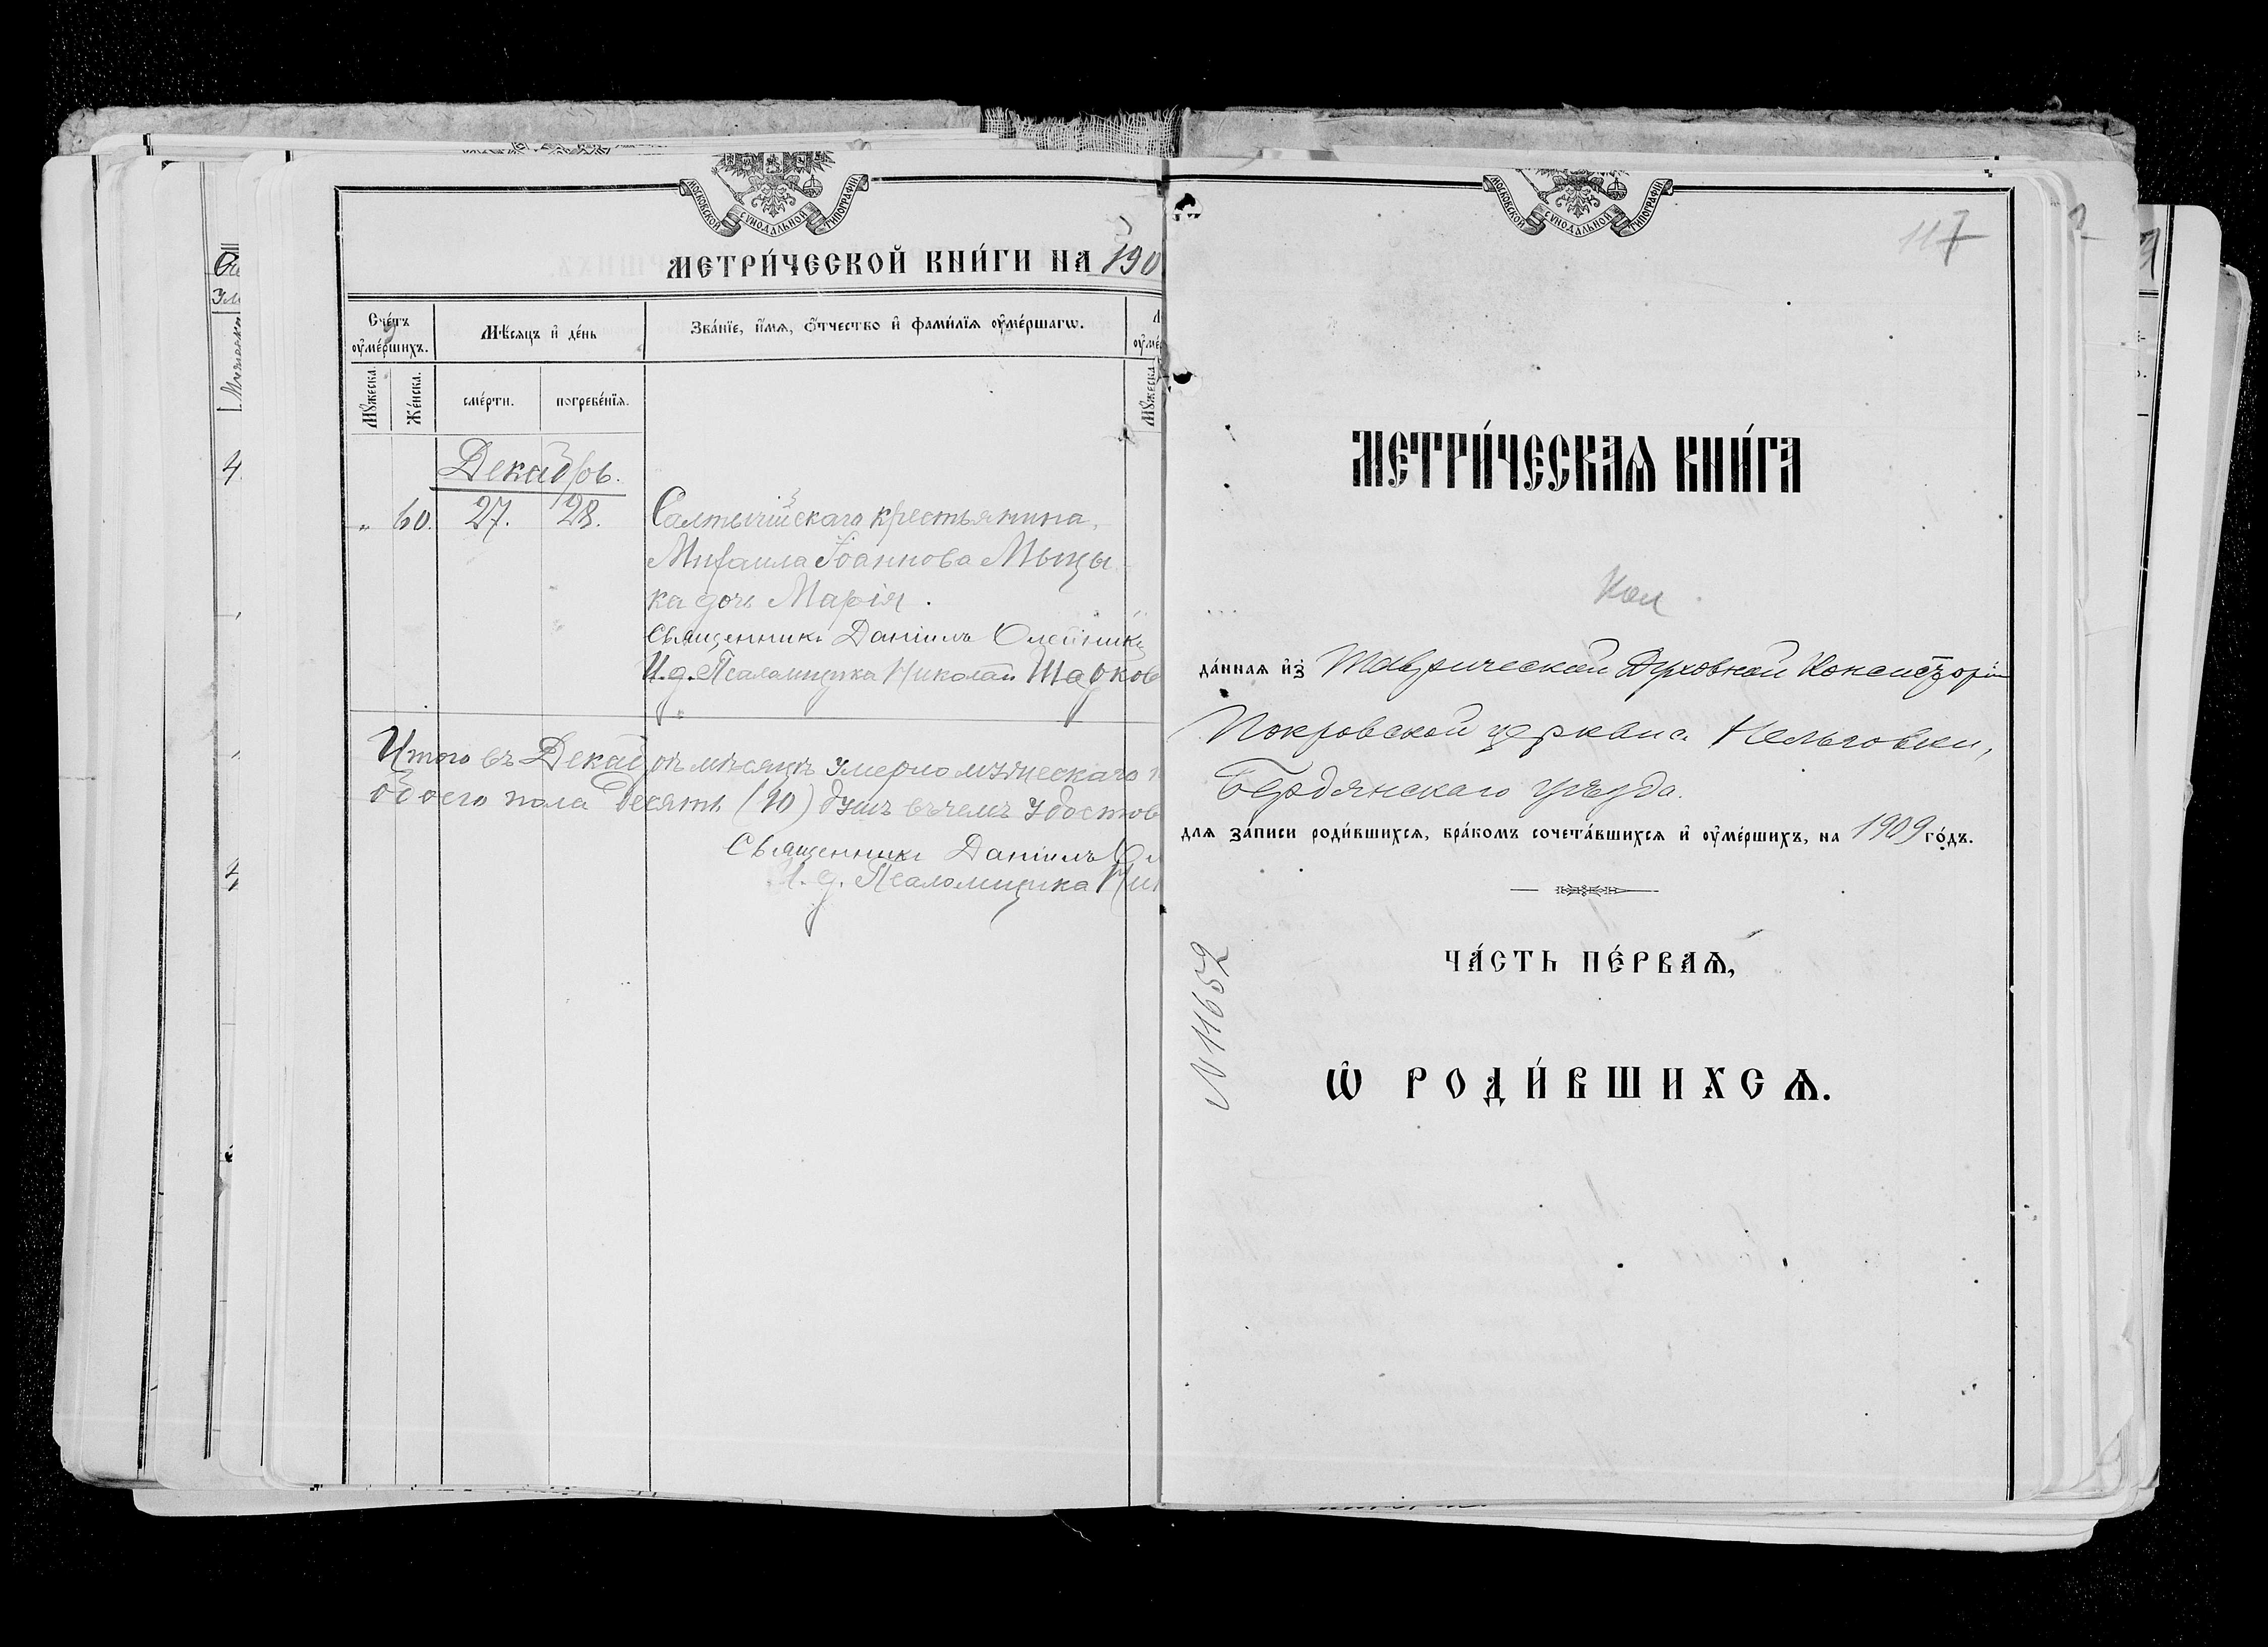 МОСКОВСКОЙ СѴНОДАЛЬНОЙ ТИПОГРАФІИ
МЕТРИ́ЧЕСКОЙ КНИ́ГИ НА 190
Сче́тъ оу҆ме́ршихъ.
Мѣ́сяцъ и҆ де́нь
Зва́нїе, и҆́мѧ, ѻ҆́тчество и҆ фами́лїѧ оу҆ме́ршагѡ.
Мꙋ́жеска.
Же́нска.
сме́рти.
погребе́нїѧ.
Мꙋ́жеска.
Декабрь.
„ 60. 27. 28. Салтычійскаго крестьянина,
Михаила Іоаннова Мыцы-
ка дочь Марія.
Священникъ Даніилъ Олейникъ
И. д. Псаломщика Николай Шарков
Итого въ Декабрѣ мѣсяцѣ умерло мужескаго
обоего пола десять (10) душъ въ чемъ удостов
Священникъ Даніилъ Ол
И. д. Псаломщика Ник
МОСКОВСКОЙ СѴНОДАЛЬНОЙ ТИПОГРАФІИ
117
МЕТРИ́ЧЕСКАѦ КНИ́ГА
да́ннаѧ и҆з̾ Таврической Духовной Консисторіи
Покровской церкви с. Нельговки,
Бердянскаго уѣзда.
длѧ за́писи роди́вшихсѧ, бра́комъ сочета́вшихсѧ и҆ оу҆ме́ршихъ, на 1909 го́дъ.
ЧА́СТЬ ПЕ́РВАѦ,
Ѡ҆ РОДИ́ВШИХСѦ.
№ 11652